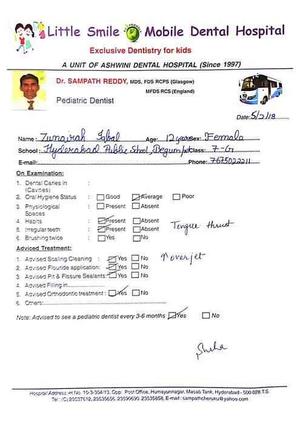 Little Smile Mobile Dental Hospital
Exclusive Dentistry for kids
A UNIT OF ASHWINI DENTAL HOSPITAL (Since 1997)
Dr. SAMPATH REDDY, MDS, FDS RCPS (Glasgow)
MFDS RCS (England)
Pediatric Dentist
Date: 5/2/18
Name: Zunairah Iqbal Age: 12 years Female
School: Hyderabad Public School, Begumpet Class: 7-G
E-mail: Phone: 7675022211
On Examination:
1. Dental Caries in (Cavities) :
2. Oral Hygiene Status : Good Average Poor
3. Physiological Spaces : Present Absent
4. Habits : Present Absent Tongue thrust
5. Irregular teeth : Present Absent
6. Brushing twice : Yes No
Advised Treatment:
1. Advised Scaling Cleaning : Yes No overjet
2. Advised Flouride application: Yes No
3. Advised Pit & Fissure Sealants : Yes No
4. Advised Filling in
5. Advised Orthodontic treatment : Yes No
6. Others:
Note: Advised to see a pediatric dentist every 3-6 months Yes No
Hospital Address: H.No. Opp: Post Office, Humayunnagar, Masab Tank, Hyderabad - 500 028 T.S.